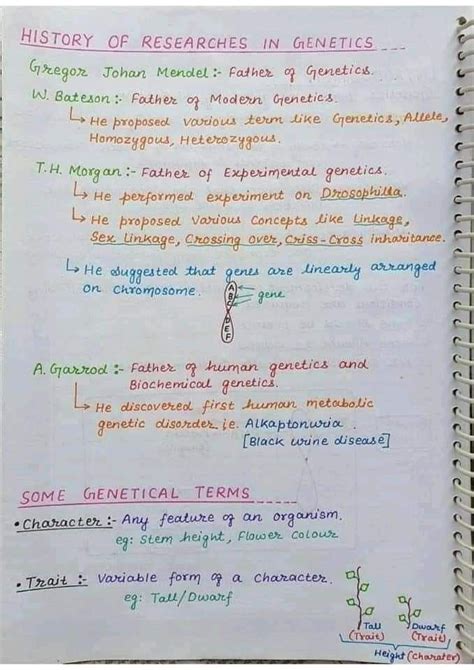 HISTORY OF RESEARCHES IN GENETICS
Gregor Johan Mendel:- Father of Genetics.
W. Bateson:- Father of Modern Genetics.
↳ He proposed various term like Genetics, Allele,
Homozygous, Heterozygous.
T.H. Morgan:- Father of Experimental genetics.
↳ He performed experiment on Drosophilla.
↳ He proposed various concepts like Linkage,
Sex Linkage, Crossing over, Criss-Cross inharitance.
↳ He suggested that genes are linearly arranged
on chromosome.
A
B
C
gene
D
E
F
A. Garrod:- Father of human genetics and
Biochemical genetics.
↳ He discovered first human metabolic
genetic disorder ie. Alkaptonuria.
[Black urine disease]
SOME GENETICAL TERMS
• Character:- Any feature of an organism.
eg: Stem height, Flower colour
• Trait:- Variable form of a character.
eg: Tall/Dwarf
Tall Dwarf
(Trait) (Trait)
Height (Charater)